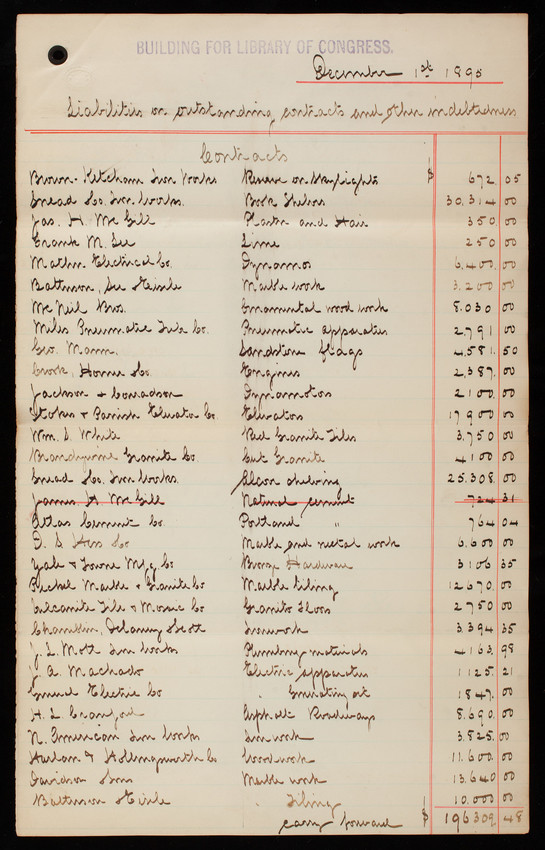 BUILDING FOR LIBRARY OF CONGRESS.
December 1st 1895
Liabilities on outstanding contracts and other indebtedness
Contracts
Brown-Ketcham Iron Works Reserve on Skylights $ 672 05
Snead Co. Iron Works. Book Shelves 30.314 00
Jas. H. McGill Plaster and Hair 350 00
Frank M. Lime 250 00
Mather Electrical Co. Dynamos 6,400. 00
Batterson, See Eisele Marble work 3.200 00
McNeil Bros. Ornamental wood work 8.030 00
Miles Pneumatic Tube Co. Pneumatic apparatus 2,791 00
Geo. Mann. Sandstone flags 4,581. 50
Crook, Horner Co. Engines 2,387. 00
Jackson & Dynamotors 2100. 00
Stokes & Parrish Elevator Co. Elevators 17900 00
Wm. S. White Red Granite Tiles 3,750 00
Brandywine Granite Co. Cut Granite 4100 00
Snead Co. Iron Works. Alcove shelving 25.308. 00
James H McGill Natural cement 724 31
Atlas Cement Co. Portland " 764 04
D. S. Hess Co Marble and metal work 6.600 00
Yale & Towne Mfg Co Bronze Hardware 3106 35
Marble & Granite Co Marble tiling 12670. 00
Vulcanite Tile & Mosaic Co Granito Floors 2750 00
Champlin, Delaney Scott Ironwork 3.394 35
J. L. Mott Iron Works Plumbing materials 4163. 98
J. A. Machado Electric apparatus 1125. 21
Electric Co " Generating set 1847. 00
H. L. Cranford Asphalt Roadways 8.690. 00
N. American Iron Works Iron work 3.825. 00
Harlan & Hollingsworth Co Woodwork 11.600. 00
Davidson Sons Marble work 13.640 00
Batterson Eisele " Tiling 10.000 00
carry forward $ 196309 48